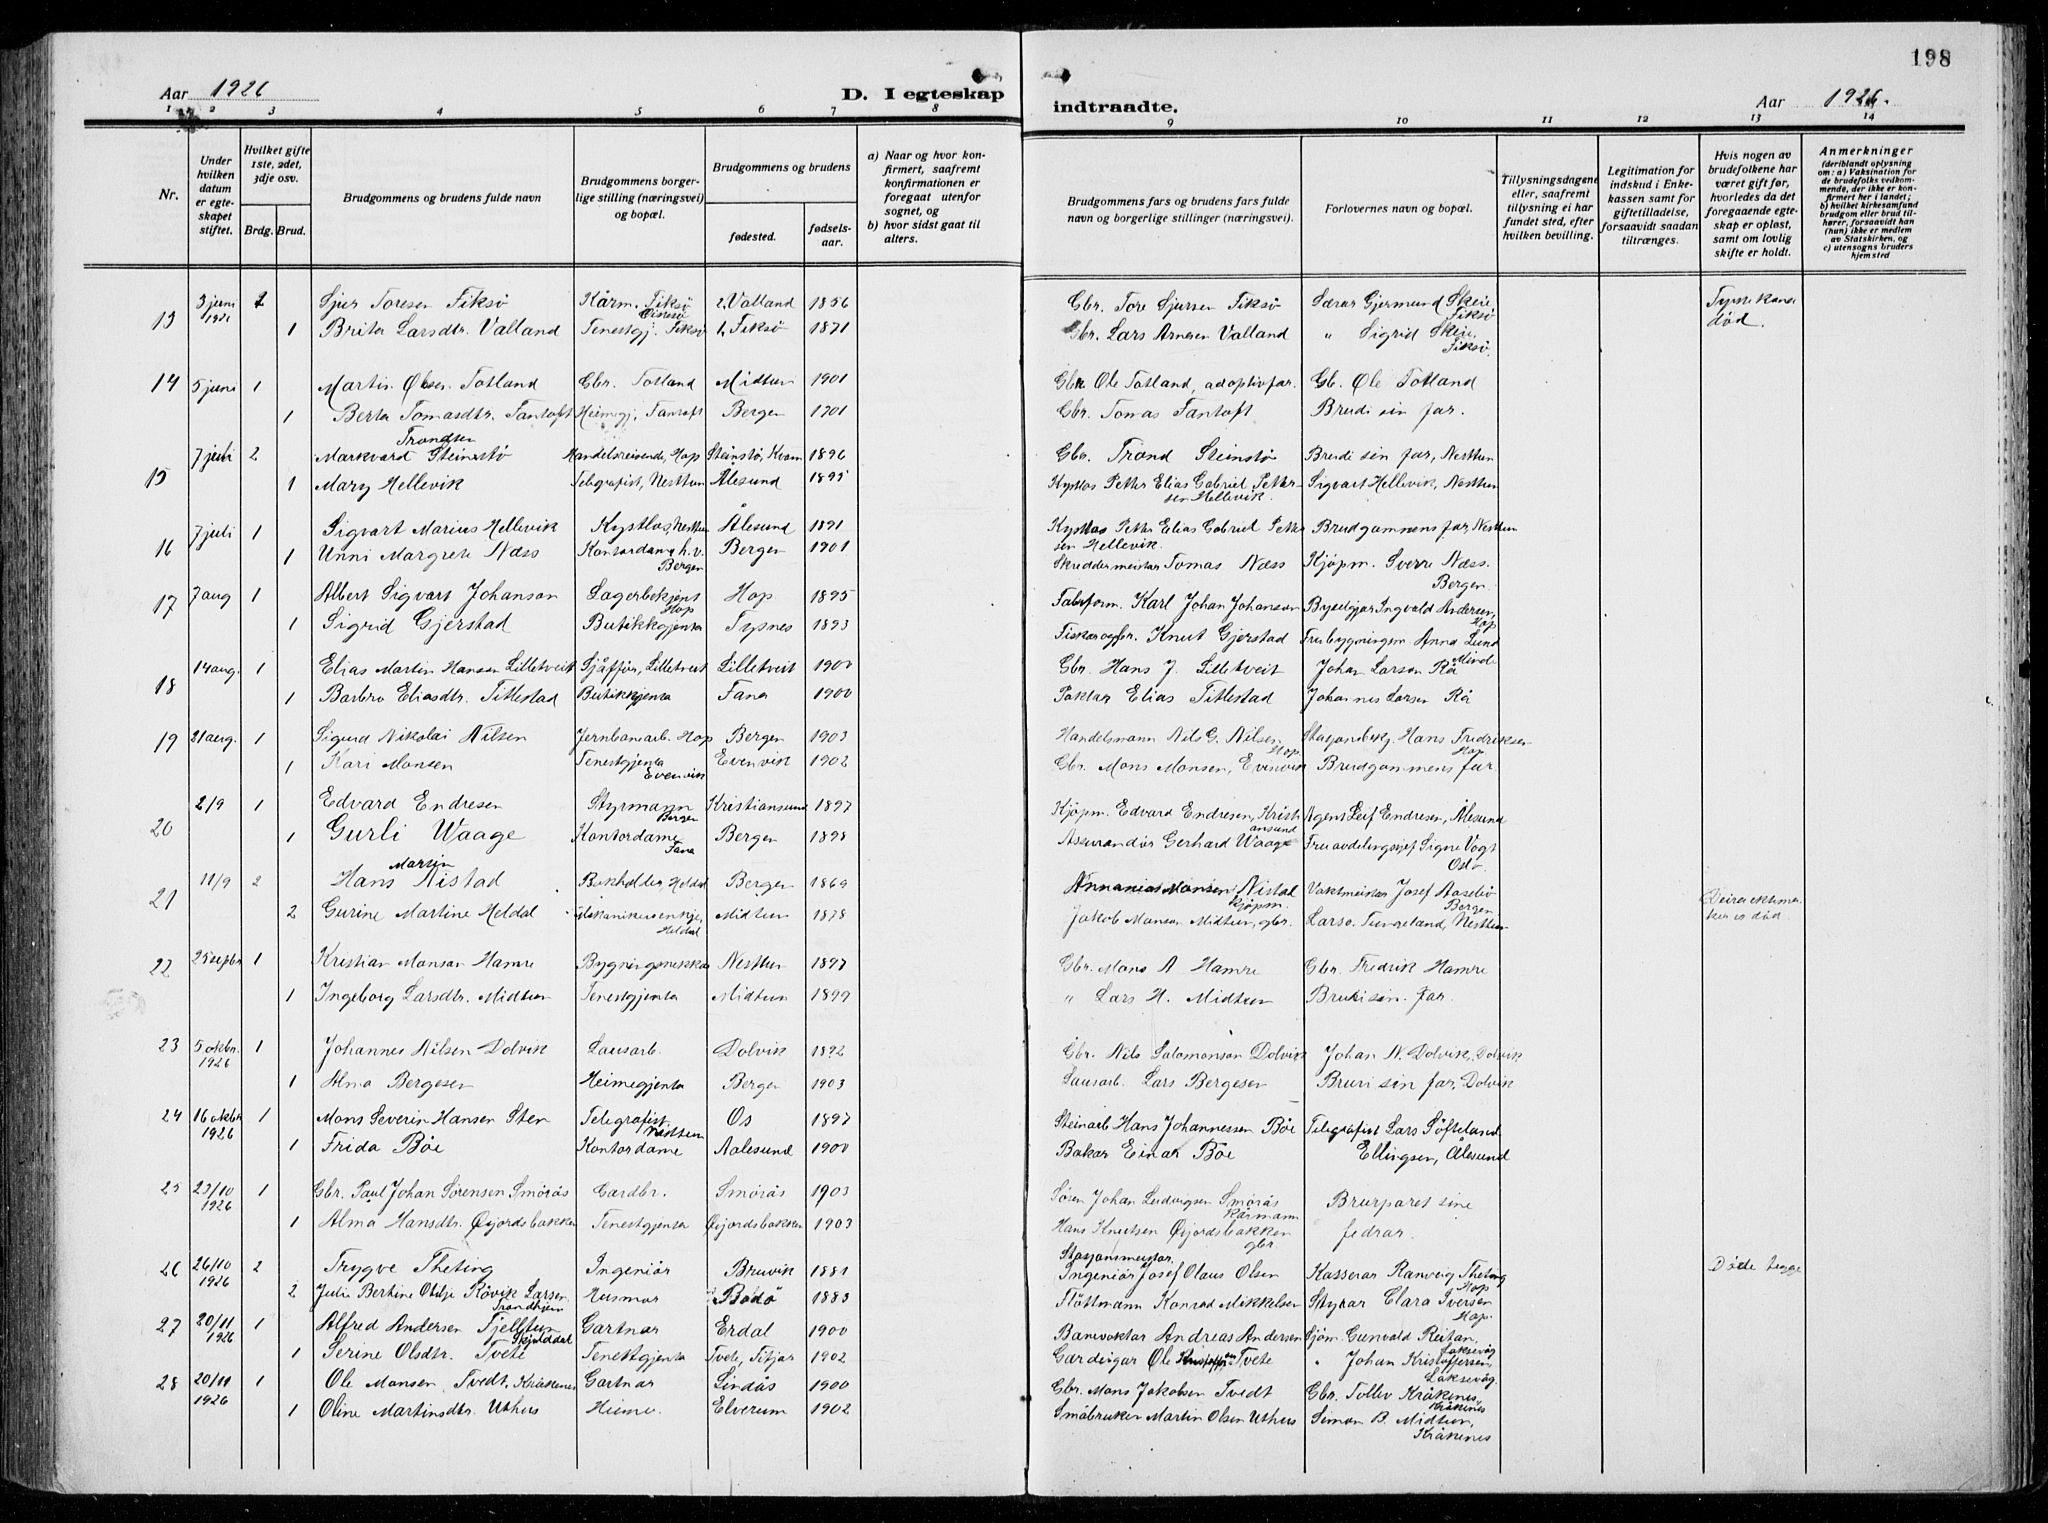 198
Aar 1926
D. I egteskap
indtraadte.
Aar 1926.
1 2 3 4 5 6 7 8
9 10 11 12 13 14
Nr.
Under hvilken datum er egteskapet stiftet.
Hvilket gifte 1ste, 2det, 3dje osv.
Brdg. Brud.
Brudgommens og brudens fulde navn
Brudgommens borgerlige stilling (næringsvei) og bopæl.
Brudgommens og brudens
fødested.
fødselsaar.
a) Naar og hvor konfirmert, saafremt konfirmationen er foregaat utenfor sognet, og
b) hvor sidst gaat til alters.
Brudgommens fars og brudens fars fulde navn og borgerlige stillinger (næringsvei).
Forlovernes navn og bopæl.
Tillysningsdagene eller, saafremt tillysning ei har fundet sted, efter hvilken bevilling.
Legitimation for indskud i Enkekassen samt for giftetilladelse, forsaavidt saadan tiltrænges.
Hvis nogen av brudefolkene har været gift før, hvorledes da det foregaaende egteskap er opløst, samt om lovlig skifte er holdt.
Anmerkninger (deriblandt oplysning om: a) Vaksination for de brudefolks vedkommende, der ikke er konfirmert her i landet; b) hvilket kirkesamfund brudgom eller brud tilhører, forsaavidt han (hun) ikke er medlem av Statskirken, og c) utensogns bruders hjemsted
13 3 juni 1926 2 Sjur Toresen Fiksø Kårm. Fiksø Østesø Valland 1856 Gbr. Tore Sjursen Fiksø Lærar Gjermund Skeie Fiksø død.
1 Brita Larsdtr. Valland Tenestgj. Fiksø Fiksø 1871 Gbr. Lars Arnesen Valland " Sigrid Skeie, Fiksø.
14 5 juni 1 Martin Olsen Totland Gbr. Totland Midtun 1901 Gbr. Ole Totland, adoptivfar. Gb. Ole Totland
1 Berta Tomasdtr. Fantoft Heimegj. Fantoft Bergen 1901 Gbr. Tomas Fantoft Brudi sin far.
15 7 juli 2 Markvard Trondsen Steinstø Handelsreisende, Hop Steinstø, Kvam 1896 Gbr. Trond Steinstø Brudi sin far, Nesttun
1 Mary Hellevik Telegrafist, Nesttun Ålesund 1895 Kystlos Petter Elias Gabriel Pettersen Hellevik. Sigvart Hellevik, Nesttun
16 7 juli 1 Sigvart Marius Hellevik Kystlos, Nesttun Ålesund 1891 Kystlos Petter Elias Gabriel Pettersen Hellevik. Brudgommens far, Nesttun
1 Unni Margrete Næss Kontordame h.v. Bergen Bergen 1901 Skreddermeister Tomas Næss Kjøpm. Sverre Næss. Bergen
17 7 aug 1 Albert Sigvart Johanson Lagerbetjent Hop Hop 1895 Fabrform. Karl Johan Johanson Byselgjar Ingvald Andersen, Hop
1 Sigrid Gjerstad Butikkgjenta Typnes 1893 Fiskar og gbr. Knut Gjerstad Fru bygningsm Anna Lund Minde
18 14 aug. 1 Elias Martin Hansen Lilletveit Sjåffør, Lilletveit Lilletveit 1900 Gbr. Hans J. Lilletveit Johan Larsen Rå
1 Barbro Eliasdtr. Titlestad Butikkgjenta Fana 1900 Paktar Elias Titlestad Johannes Larsen Rå
19 21 aug. 1 Sigurd Nikolai Nilsen Jernbanearb. Hop Bergen 1903 Handelsmann Nils G. Nilsen, Hop. Stasjonsbetj. Hans Fredriksen Hop
1 Kari Monsen Tenestgjenta Evenvik Evenvik 1902 Gbr. Mons Monsen, Evenvik Brudgommens far.
20 2/9 1 Edvard Endresen Styrmann Bergen Kristiansund 1897 Kjøpm. Edvard Endresen, Kristiansund Agent Leif Endresen, Ålesund
1 Gurli Waage Kontordame Fana Bergen 1898 Assurandør Gerhard Waage Fru avdelingssjef Signe Vogt Oslo
21 11/9 2 Hans Martin Nistad Bokholder, Heldal Bergen 1869 Annanias Monsen Nistad kjøpm. Vaktmeister Josef Aaseliv Bergen
2 Gurine Martine Heldal Mekanikerenkje, Heldal Midtun 1878 Jakob Monson Midtun, gbr. Lars O. Tungeland, Nesttun
22 25 septbr 1 Kristian Monson Hamre Bygningssnekkar Nesttun 1897 Gbr. Mons A Hamre Gbr. Fredrik Hamre
1 Ingeborg Larsdtr. Midtun Tenestgjenta Midtun 1899 " Lars H. Midtun Brudi sin far.
23 5 oktbr. 1926 1 Johannes Nilsen Dolvik Lausarb. Dolvik 1892 Gbr. Nils Salomonson Dolvik Johan N. Dolvik, Dolvik
1 Alma Bergesen Heimegjenta Bergen 1903 Lausarb. Lars Bergesen Bruri sin far, Dolvik
24 16 oktbr 1926 1 Mons Severin Hansen Sten Telegrafist, Nesttun Os 1897 Steinarb Hans Johannessen Bøe Telegrafist Lars Søfteland
1 Frida Bøe Kontordame Aalesund 1900 Bakar Einar Bøe Ellingsen, Ålesund
25 23/10 1926 1 Gbr. Paul Johan Sørensen Smørås Gardbr. Smørås 1903 Søren Johan Ludvigsen Smørås kårmann Brurparet sine
1 Alma Hansdtr. Øvjordsbakken Tenestgjenta Øvjordsbakken 1903 Hans Knutsen Øvjordsbakken gbr. fedrar.
26 26/10 1926 2 Trygve Theting Ingeniør Bruvik 1881 Stasjonsmeistar. Ingeniør Josef Olaus Olsen Kasserar Ranveig Theting Hop Døde begge
2 Julie Bertine Otilje Røvik Larsen Trondhjem Husmor Bodø 1883 Fløttmann Konrad Mikkelsen Styrar Clara Iversen Hop.
27 20/11 1926 1 Alfred Andersen Fjelltun Skjolddal Gartnar Erdal 1900 Banevaktar Andreas Andersen Sjøm. Gunvald Reitan, Laksevåg
1 Serine Olsdtr. Tvete Tenestgjenta Tvete, Fitjar 1902 Gardeigar Ole Kristoffersen Tvete " Johan Kristoffersen, Laksevåg.
28 20/11 1926 1 Ole Monsen Tvedt, Kråkenes Gartnar Lindås 1900 Gbr. Mons Jakobsen Tvedt Gbr. Tollev Kråkenes, Kråkenes
1 Oline Martinsdtr. Uthus Heime Elverum 1902 Småbruker Martin Olsen Uthus Simon B. Midtun, Kråkenes